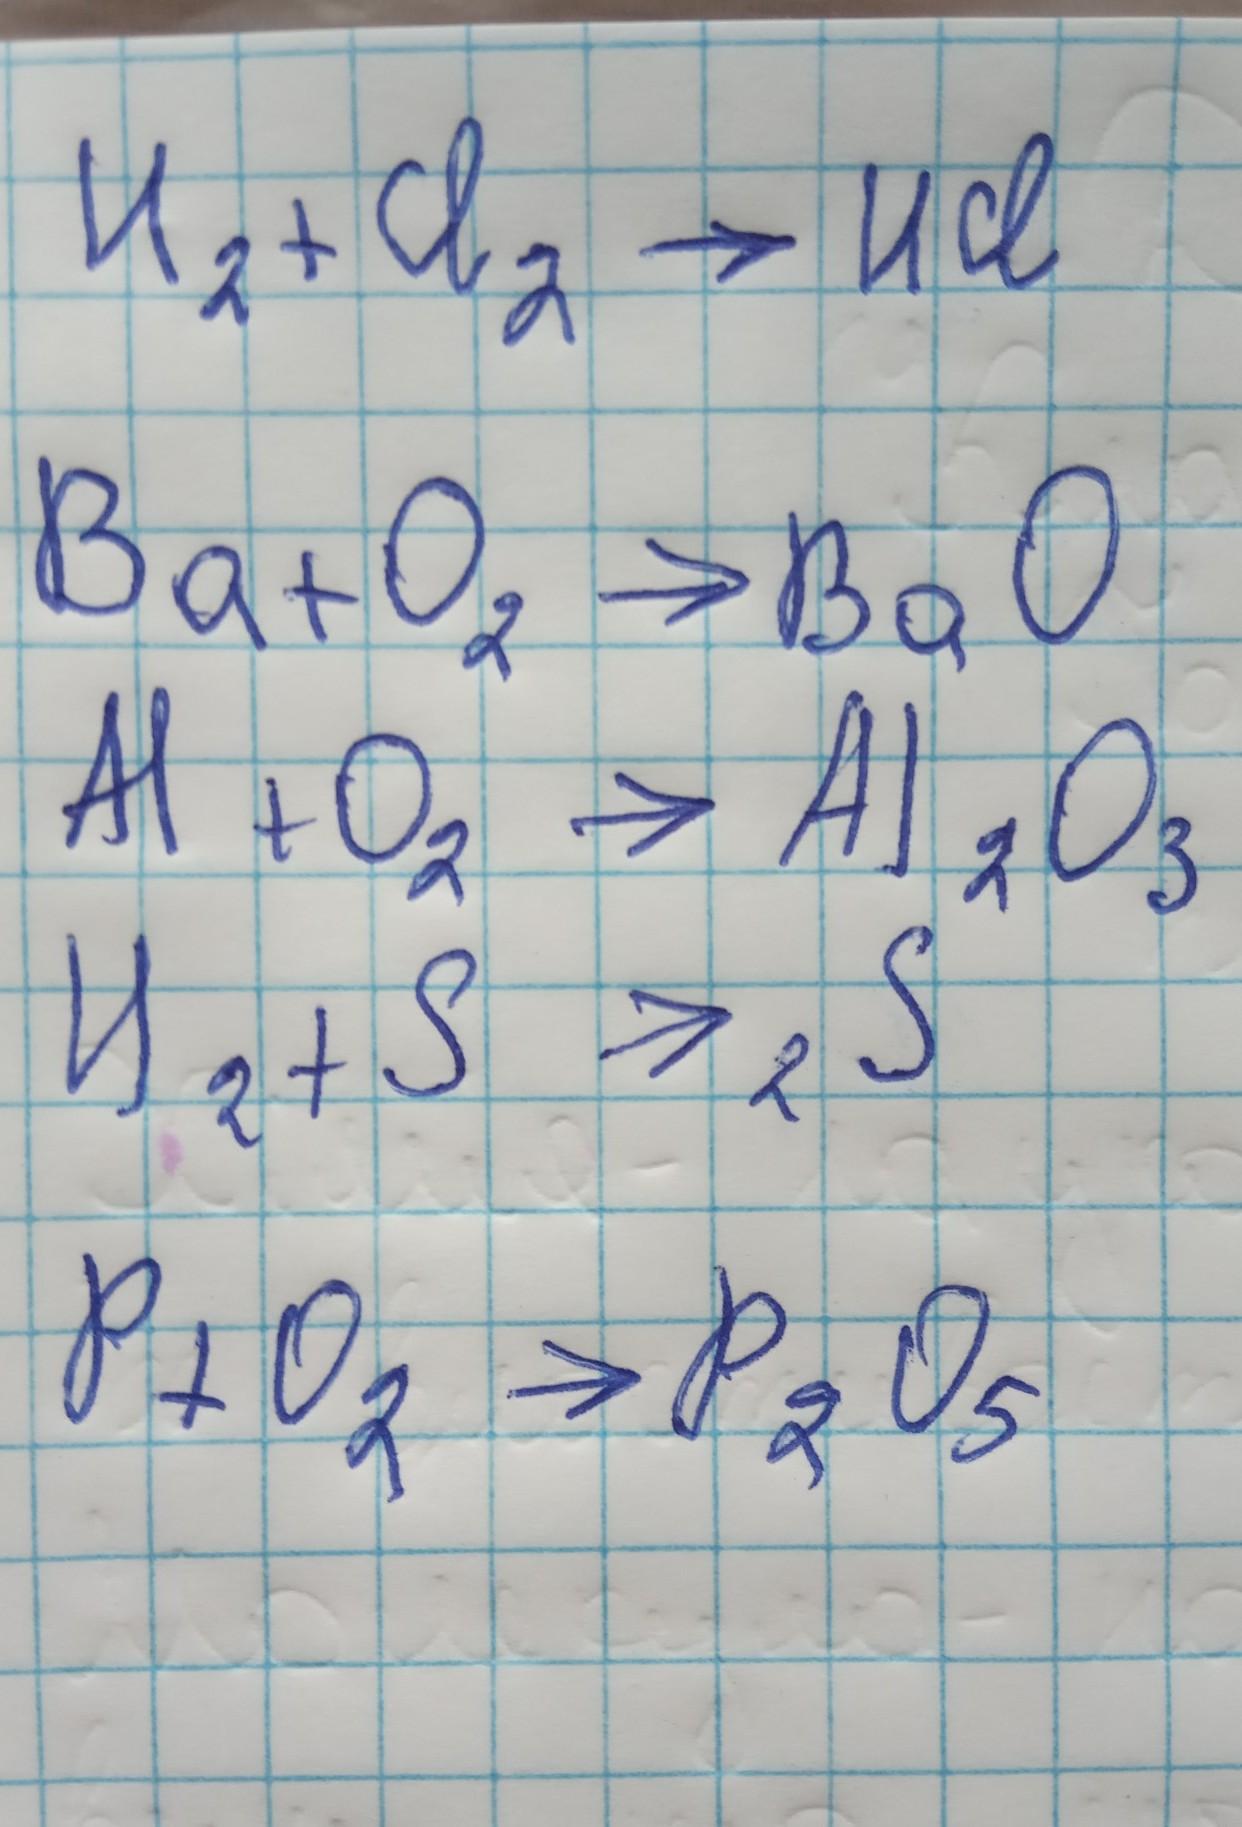 H₂ + Cl₂ → HCl
Ba + O₂ → BaO
Al + O₂ → Al₂O₃
H₂ + S → ₂S
P + O₂ → P₂O₅